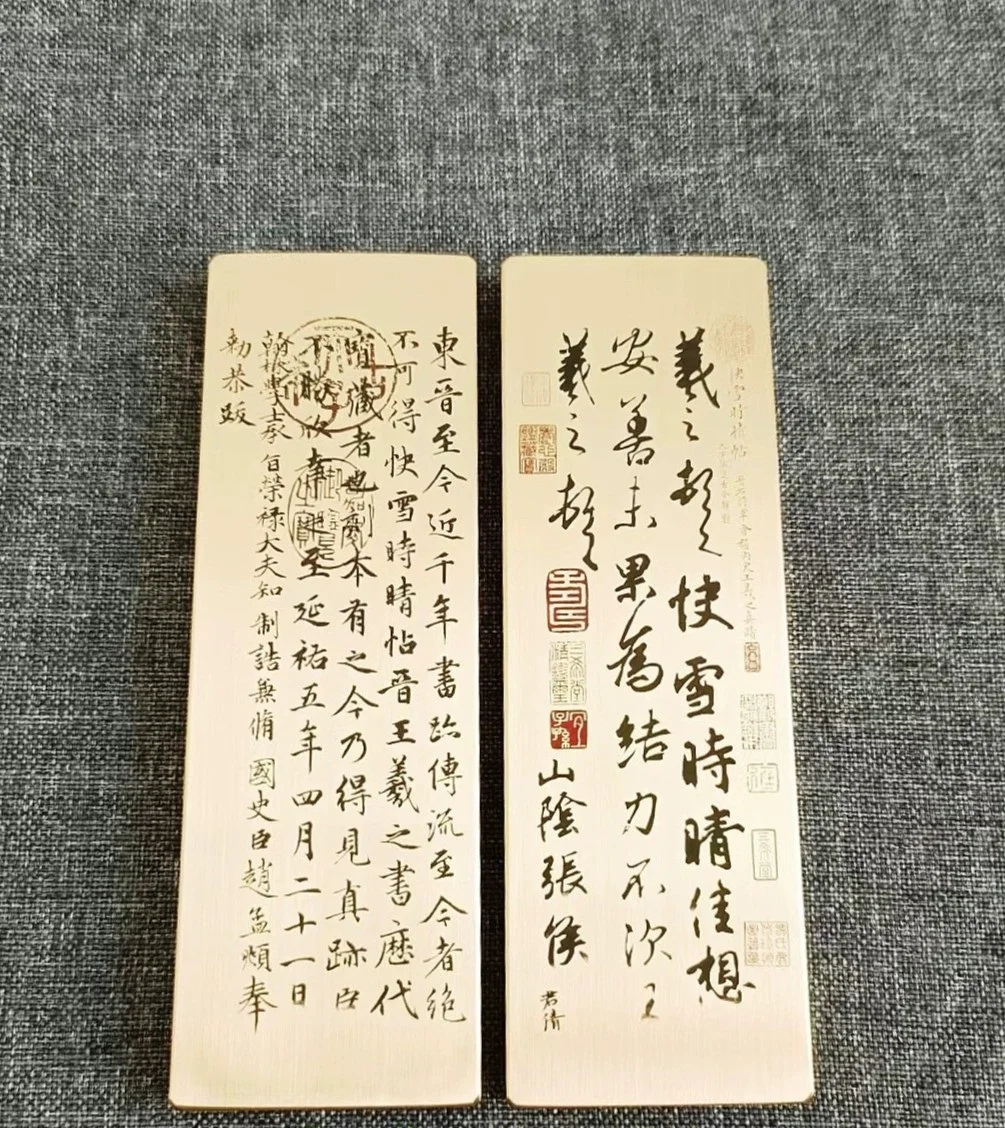 快雪時晴帖
羲之頓首快雪時晴佳想
安善未果為結力不次王
羲之頓首
山陰張侯
君倩
三希堂
三希堂精鑑璽
東晉至今近千年書跡傳流至今者絕
不可得快雪時晴帖晉王羲之書歷代
寶藏者也刻本有之今乃得見真跡臣
不勝欣幸之至延祐五年四月二十一日
翰林學士承旨榮祿大夫知制誥兼脩國史臣趙孟頫奉
勑恭跋